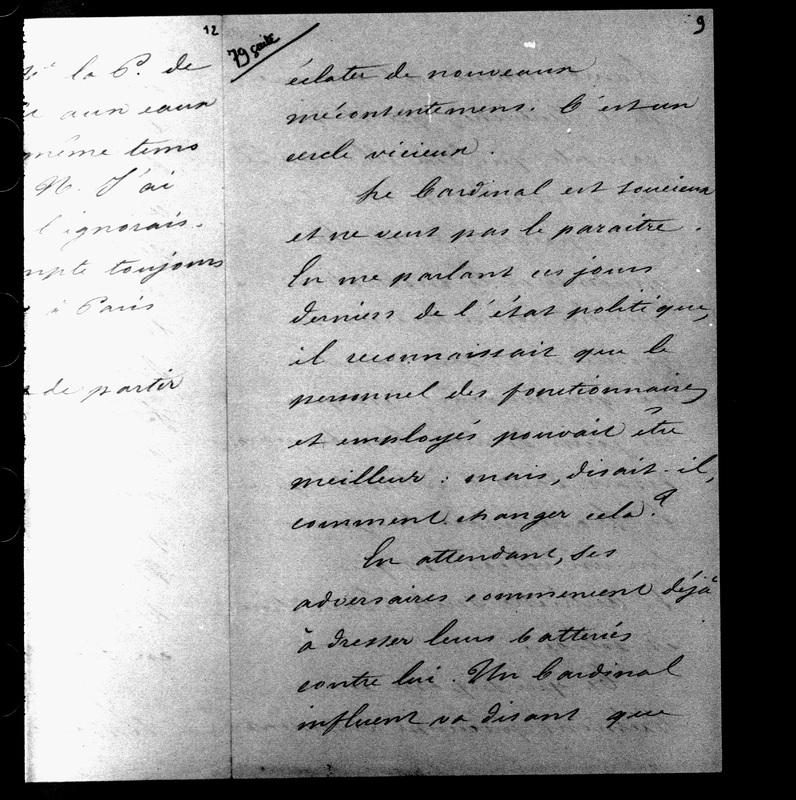 12
la P. de
aux eaux
même tems
N. J'ai
l'ignorais.
toujours
à Paris
de partir
79 suite
9
éclater de nouveaux
mécontentemens. C'est un
cercle vicieux.
Le Cardinal est soucieux
et ne veut pas le paraitre.
En me parlant ces jours
derniers de l'état politique,
il reconnaissait que le
personnel des fonctionnaires
et employés pouvait être
meilleur : mais, disait-il,
comment changer cela ?
En attendant, ses
adversaires commencent déjà
à dresser leurs batteries
contre lui. Un Cardinal
influent va disant que